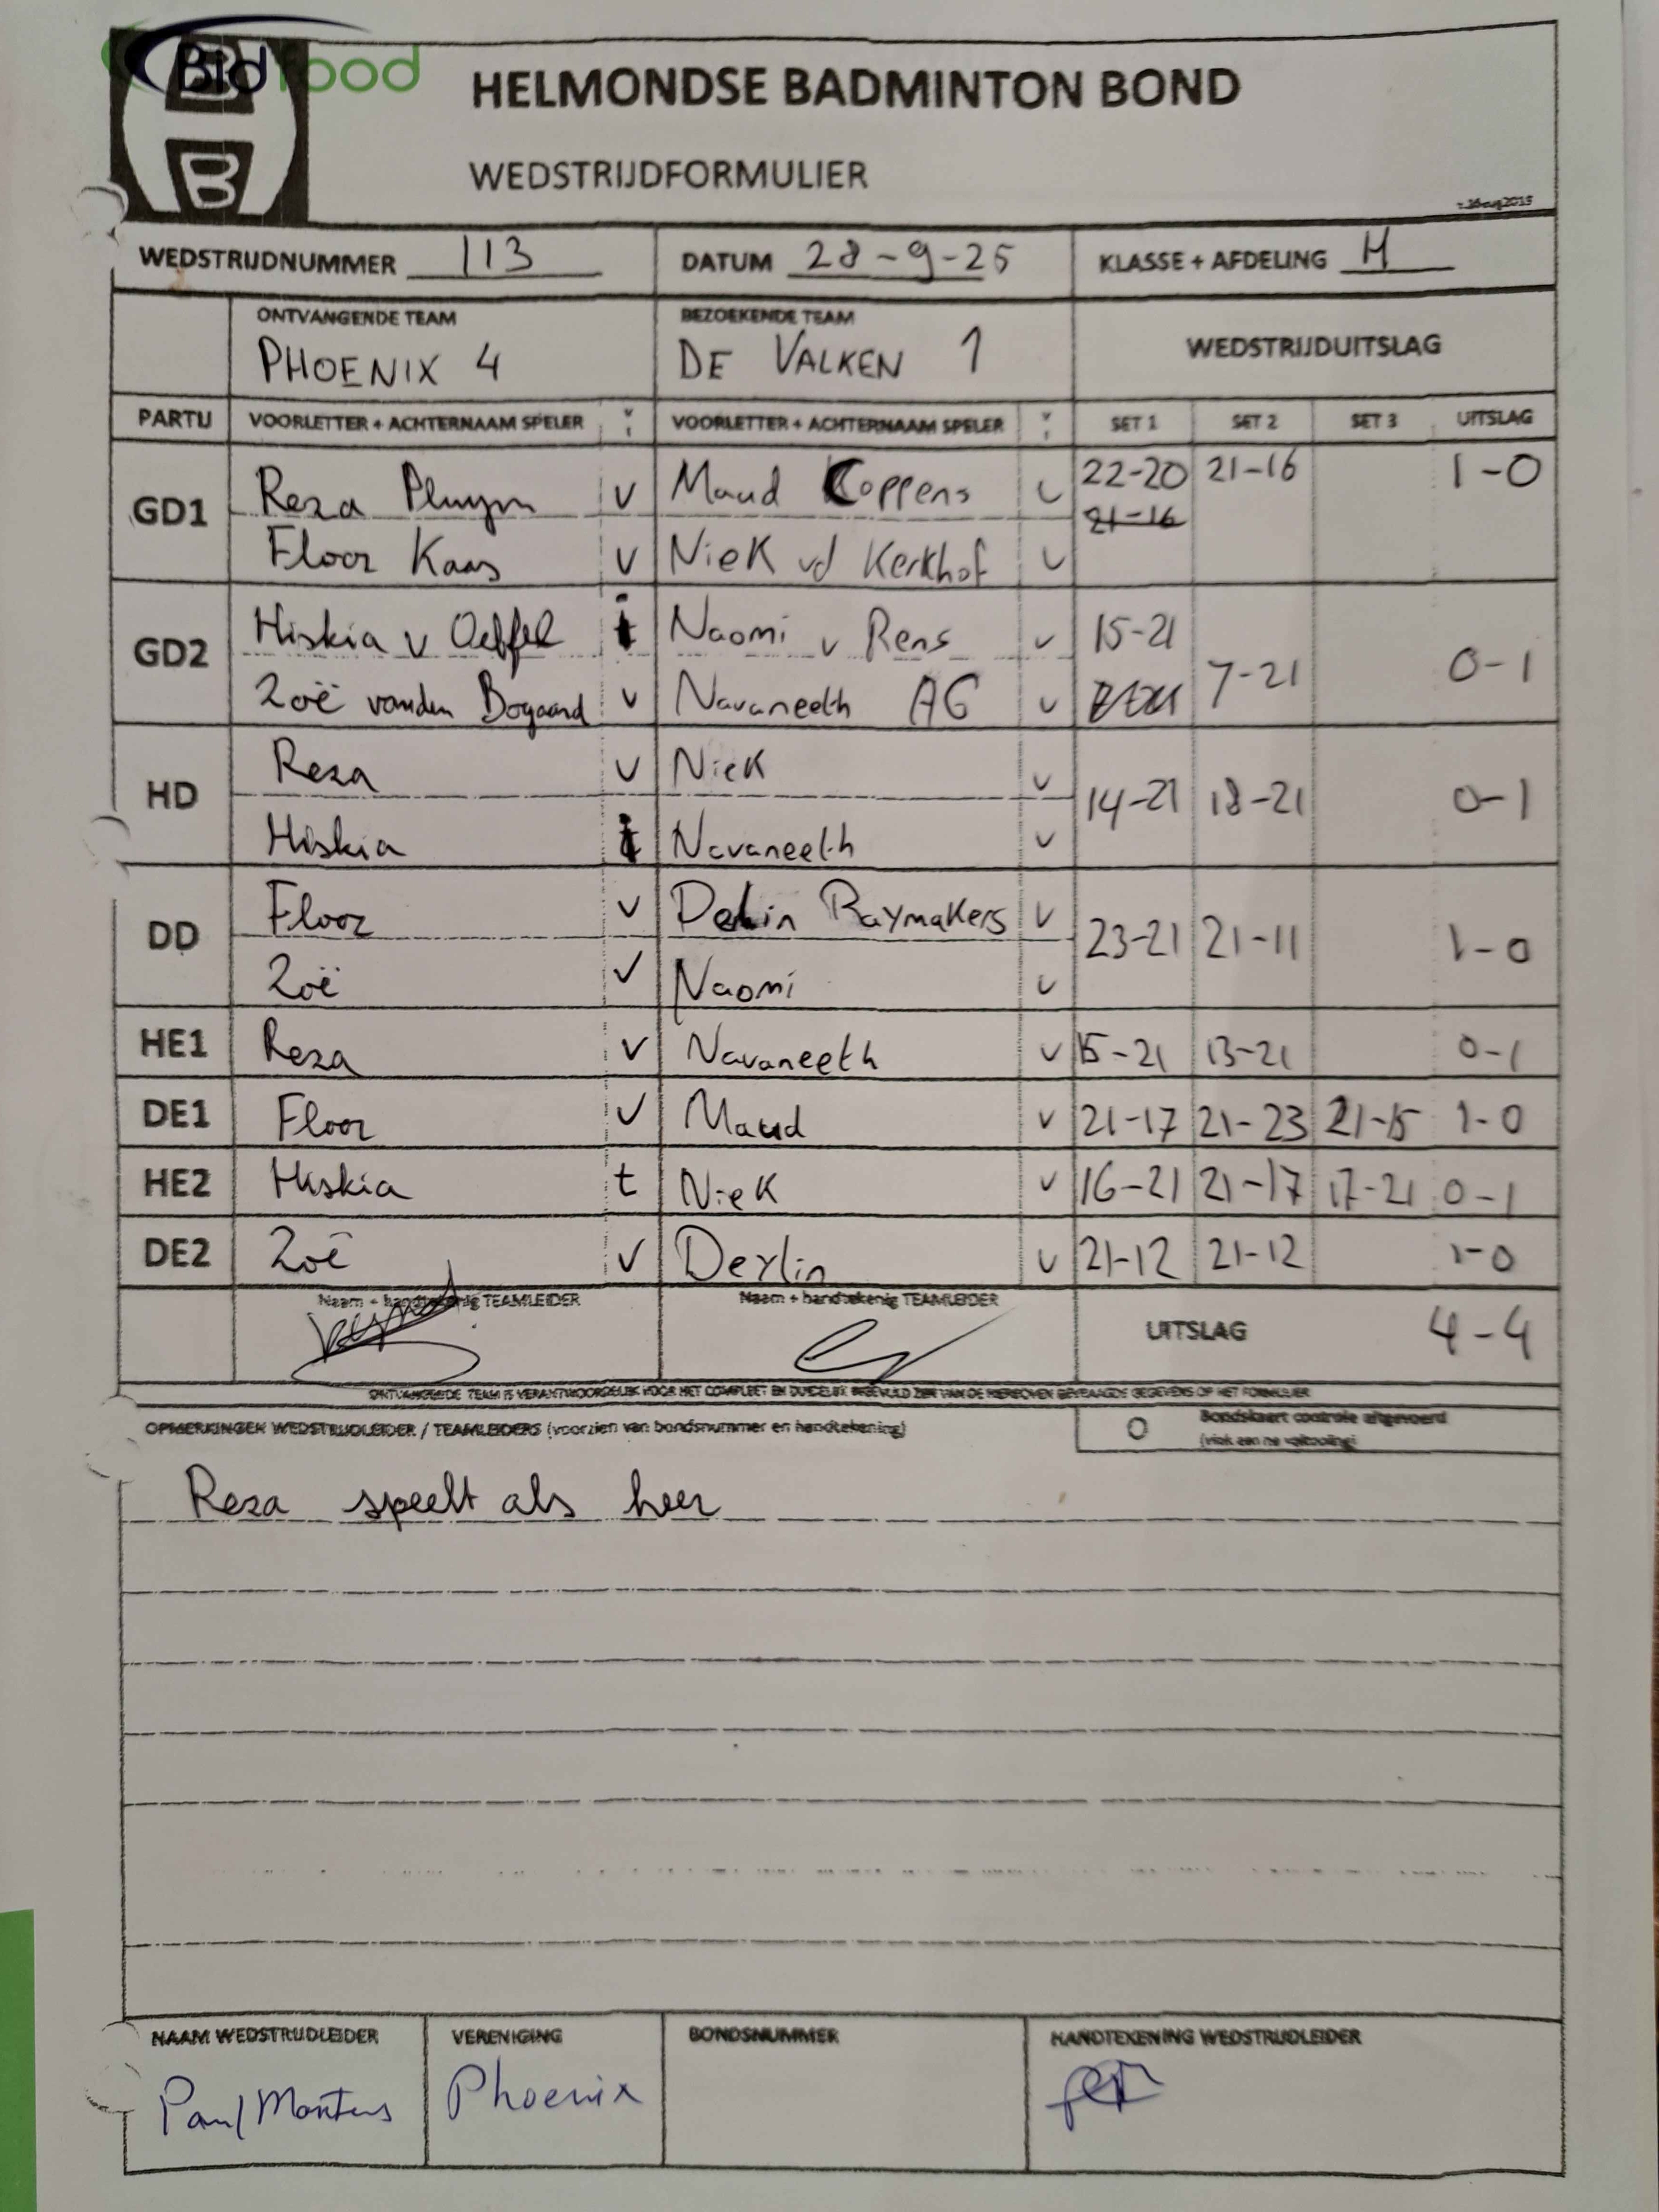 Bidfood
HELMONDSE BADMINTON BOND
WEDSTRIJDFORMULIER
WEDSTRIJDNUMMER 113 DATUM 28-9-25 KLASSE + AFDELING H
ONTVANGENDE TEAM BEZOEKENDE TEAM
PHOENIX 4 DE VALKEN 1 WEDSTRIJDUITSLAG
PARTIJ VOORLETTER + ACHTERNAAM SPELER v i VOORLETTER + ACHTERNAAM SPELER v i SET 1 SET 2 SET 3 UITSLAG
GD1 Reza Pluym v Maud Coppens v 22-20 21-16 1-0
21-16
Floor Kaas v Niek vd Kerkhof v
GD2 Hiskia v Oeffel t Naomi v Rens v 15-21 7-21 0-1
Zoë vanden Bogaard v Navaneeth AG v
HD Reza v Niek v 14-21 18-21 0-1
Hiskia t Navaneeth v
DD Floor v Raymakers v 23-21 21-11 1-0
Zoë v Naomi v
HE1 Reza v Navaneeth v 15-21 13-21 0-1
DE1 Floor v Maud v 21-17 21-23 21-15 1-0
HE2 Hiskia t Niek v 16-21 21-17 17-21 0-1
DE2 Zoë v Derlin v 21-12 21-12 1-0
Naam + handtekenig TEAMLEIDER Naam + handtekenig TEAMLEIDER
UITSLAG 4-4
ONTVANGENDE TEAM IS VERANTWOORDELIJK VOOR HET COMPLEET EN DUIDELIJK INGEVULD ZIJN VAN DE HIERBOVEN GEVRAAGDE GEGEVENS OP HET FORMULIER
OPMERKINGEN WEDSTRIJDLEIDER / TEAMLEIDERS (voorzien van bondsnummer en handtekening)
Bondskaart controle uitgevoerd
Reza speelt als heer
NAAM WEDSTRIJDLEIDER VERENIGING BONDSNUMMER HANDTEKENING WEDSTRIJDLEIDER
Paul Martens Phoenix